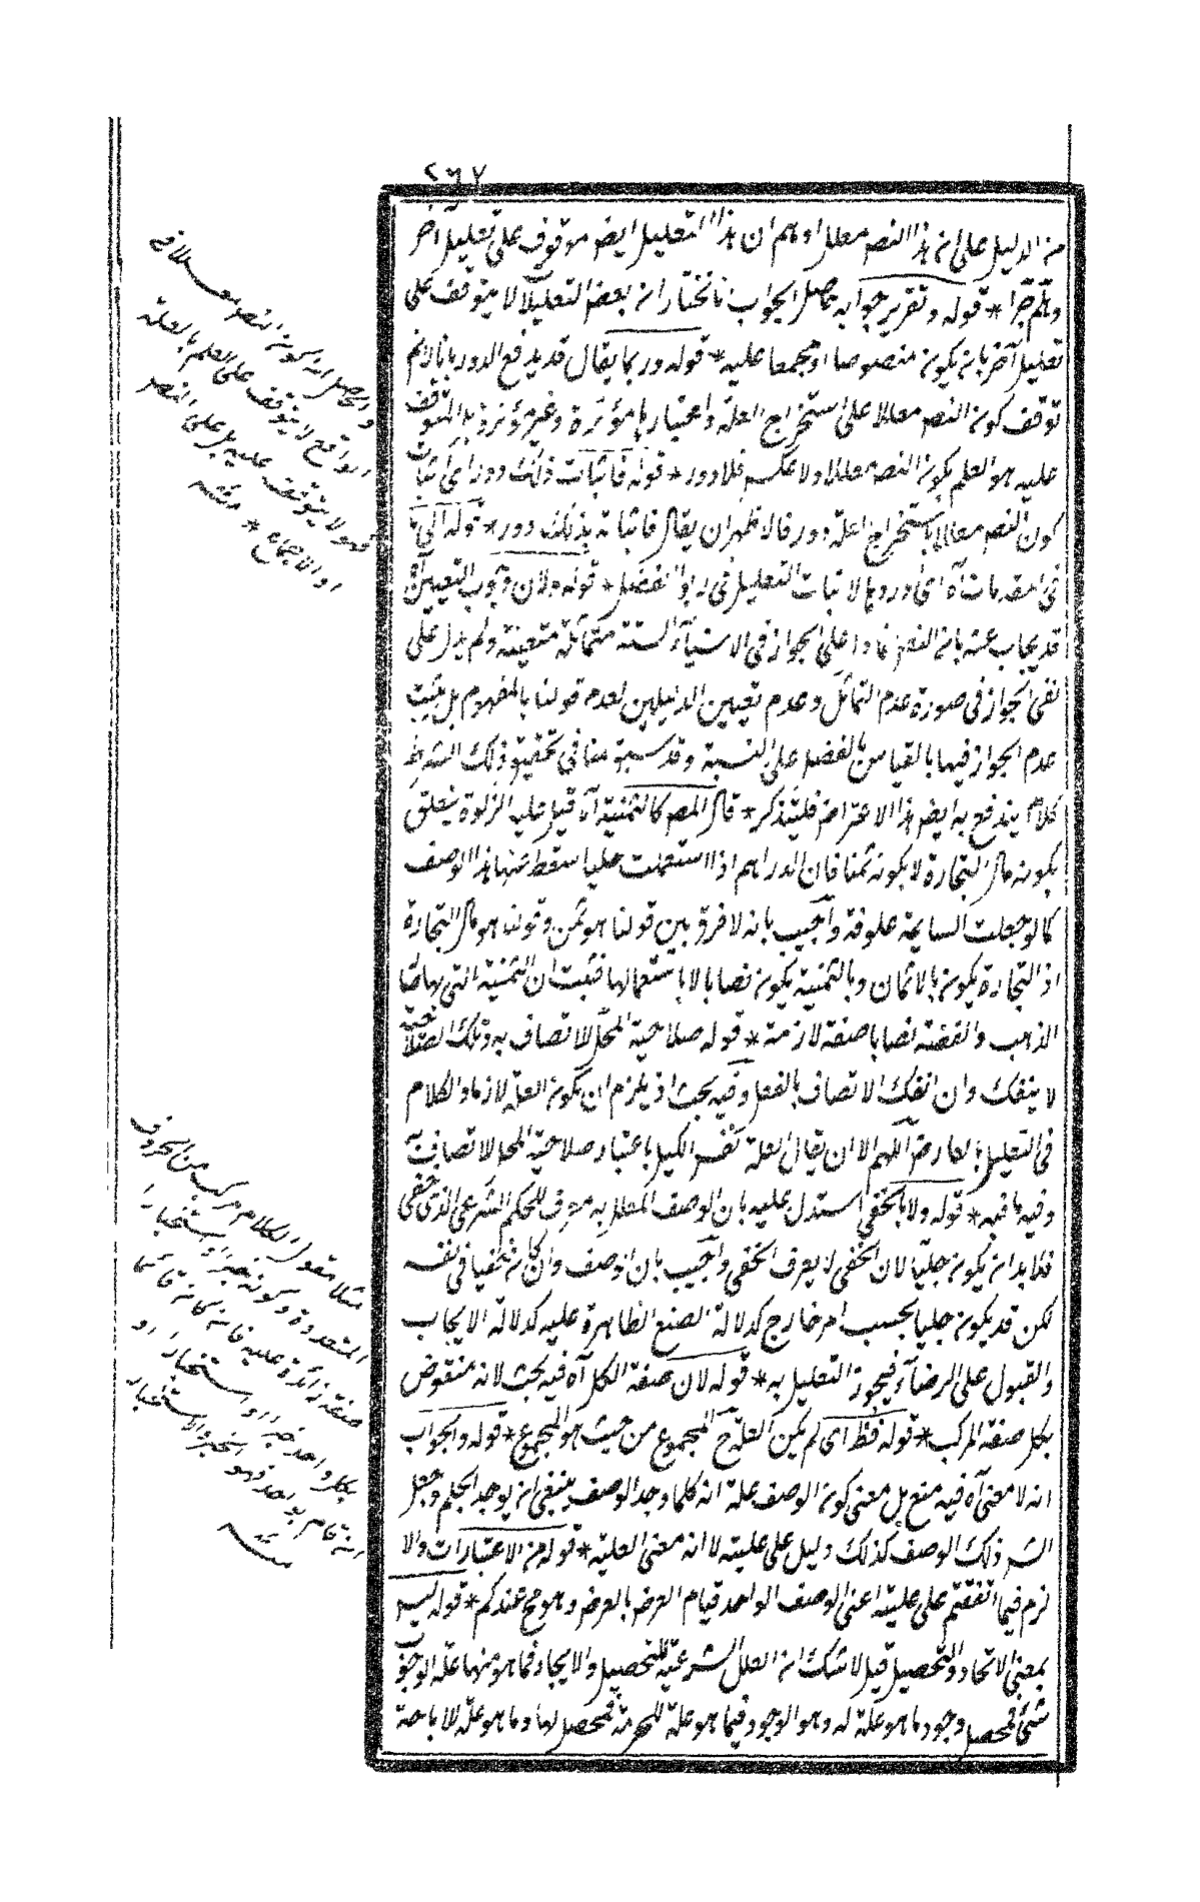 ٢٦٧
من الدليل على ان هذا النص معلل او هم ان هذا التعليل ايضا موقوف على تعليل آخر
وهلم جرا * قوله وتقرير جوابه حاصل الجواب نختار ان بعض التعليلات لا يتوقف على
تعليل آخر بان يكون منصوصا او مجمعا عليه * قوله وربما يقال قد يدفع الدور بانا لا نم
توقف كون النص معللا على استخراج العلة واعتبارها مؤثرة وغير مؤثرة بل المتوقف
عليه هو العلم بكون النص معللا ولا عكس فلا دور * قوله فاثبات ذلك دور اى اثبات
كون النص معللا باستخراج العلة دور فالاظهر ان يقال فاثباته بذلك دور * قوله
فى المقدمات آه اى ورودها لاثبات التعليل فى ربوا الفضل * قوله ولان وجوب التعيين آه
قد يجاب عنه بان النص على الجواز فى الاشياء الستة متماثلة متعينة ولم يدل على
نفى الجواز فى صورة عدم التماثل وعدم تعيين البدلين لعدم قولنا بالمفهوم بل يثبت
عدم الجواز فيها بالقياس بالفضل على النسية وقد سبق منا فى تحقيق ذلك الشرط
كلام يندفع به ايضا هذا الاعتراض فليتذكر * قال المص كالثمنية آه قيل عليه الزكوة يتعلق
بكونه مال التجارة لا بكونه ثمنا فان الدراهم اذا استعملت حليا سقط عنها هذا الوصف
كما لو جعلت السايمة علوفة واجيب بانه لا فرق بين قولنا هو ثمن وقولنا هو مال التجارة
اذ التجارة يكون بالاثمان وبالثمنية يكون نصابا لا باستعمالها فثبت ان الثمنية التى بها صار
الذهب والفضة نصابا صفة لازمة * قوله صلاحية المحل للاتصاف به وتلك الصلاحية
لا ينفك وان انفك الاتصاف بالفعل وفيه بحث اذ يلزم ان يكون العلة لازما والكلام
فى التعليل بعارض اللهم الا ان يقال العلة نفس الكيل باعتبار صلاحية المحل للاتصاف به
وفيه ما فيه * قوله ولا بالخفى استدل عليه بان الوصف المعلل به معرف للحكم الشرعى الذى خفى
فلا بد ان يكون جليا لان الخفى لا يعرف الخفى واجيب بان الوصف وان كان خفيا فى نفسه
لكن قد يكون جليا بحسب امر خارج كدلالة الصنع الظاهرة عليه كدلالة الايجاب
والقبول على الرضاء فيجوز التعليل به * قوله لان صفة الكل آه فيه بحث لانه منقوض
بكل صفة المركب * قوله فظ اى لم يكن العلة ح المجموع من حيث هو المجموع * قوله والجواب
انه لا معنى آه فيه منع بل معنى كون الوصف علة انه كلما وجد الوصف ينبغى ان يوجد الحكم وجعل
الشرع ذلك الوصف كذلك دليل على عليته لا انه معنى العلية * قوله من الاعتبارات والا
لزم فيما اتفقتم على عليته اعنى الوصف الواحد قيام العرض بالعرض وهو مح عندكم * قوله ليس
بمعنى الاتحاد والتحصيل قيل لا شك ان العلل الشرعية للتحصيل والايجاد فما هو منها علة الوجوب
شئ فمحصل وجود ما هو علة له وهو الوجود فيما هو علة للحرمة فمحصل لها وما هو علة للاباحة
والحاصل ان كون النص معللا فى
الواقع لا يتوقف على العلم بالعلة
فهو لا يتوقف عليه بل على النص
او الاجماع * منه
مثلا مقول الكلام مركب من الحروف
المتعددة وكونه خبرا او استخبارا
صفة زائدة عليه فان كان قائما
بكل واحد خبرا او استخبارا او
ان قام بواحد فهو الخبر والاستخبار
منه